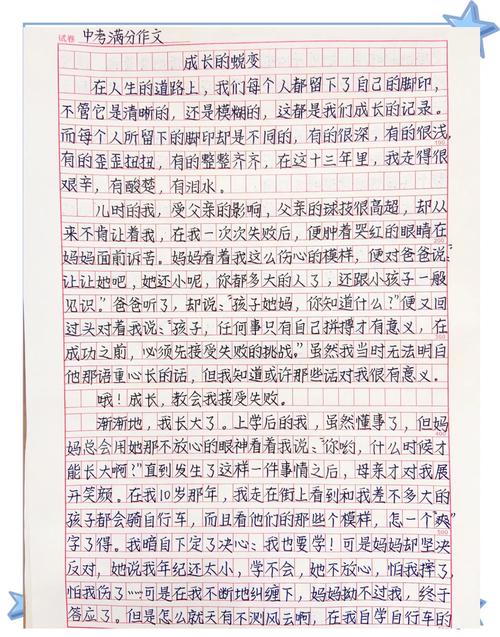 试卷 中考满分作文
成长的蜕变
在人生的道路上，我们每个人都留下了自己的脚印，
不管它是清晰的，还是模糊的，这都是我们成长的记录。
而每个人所留下的脚印却是不同的，有的很深，有的很浅，
有的歪歪扭扭，有的整整齐齐，在这十三年里，我走得很
艰辛，有酸楚，有泪水。
儿时的我，受父亲的影响，父亲的球技很高超，却从
来不肯让着我，在我一次次失败后，便肿着哭红的眼睛在
妈妈面前诉苦。妈妈看着我这么伤心的模样，便对爸爸说：
让让她吧，她还小呢，你都多大的人了；还跟小孩子一般
见识。”爸爸听了，却说：“孩子她妈，你知道什么？”便又回
过头对着我说：“孩子，任何事只有自己拼搏才有意义，在
成功之前，必须先接受失败的挑战。”虽然我当时无法明白
他那语重心长的话，但我知道或许那些话对我很有意义。
哦！成长，教会我接受失败。
渐渐地，我长大了。上学后的我，虽然懂事了，但妈
妈总会用她那不放心的眼神看着我说：“你哟，什么时候才
能长大啊？”直到发生了这样一件事情之后，母亲才对我展
开笑颜。在我10岁那年，我走在街上看到和我差不多大的
孩子都会骑自行车，而且看他们的那些个模样，怎一个“爽”
字了得。我暗自下定了决心：我也要学！可是妈妈却坚决
反对，她说我年纪还太小，学不会，她不放心，怕我摔了，
怕我伤了……可是在我不断地纠缠下，妈妈拗不过我，终于
答应了。但是怎么就天有不测风云啊，在我自学自行车的